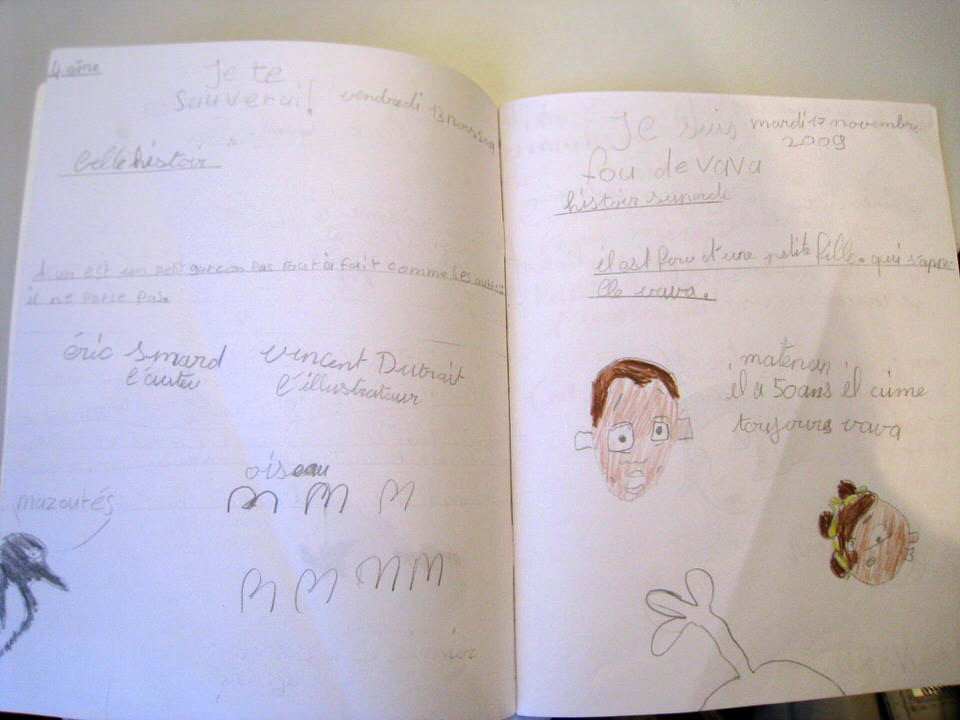 Je te
sauverai! vendredi 13 nov
belle histoir
est un petit garcon pas tout à fait comme les autres
il ne parle pas.
éric simard vincent Dutrait
l'auteu l'illustrateur
oiseau
mazoutés
Je suis mardi 17 novembre
2009
fou de vava
histoir
il est fou d'une petite fille. qui s'appe
lle vava.
matenan
il a 50 ans il aime
toujours vava